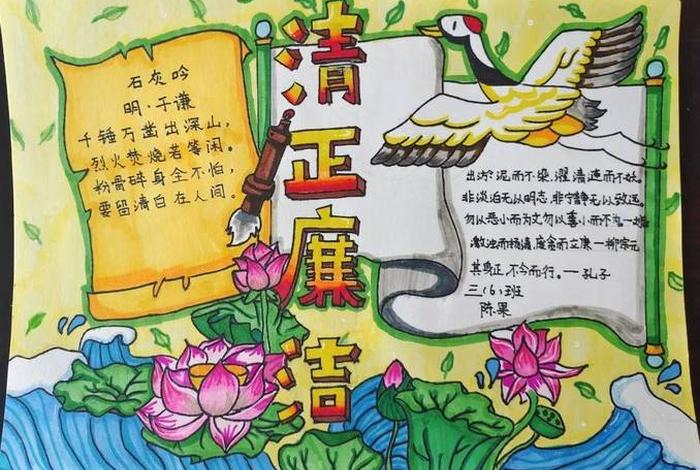 清正廉洁
石灰吟
明·于谦
千锤万凿出深山，
烈火焚烧若等闲。
粉骨碎身全不怕，
要留清白在人间。
出淤泥而不染，濯清涟而不妖。
非淡泊无以明志，非宁静无以致远。
勿以恶小而为之勿以善小而不为一
激浊而扬清，废贪而立廉一柳宗元
其身正，不令而行。一孔子
三(6)班
陈果